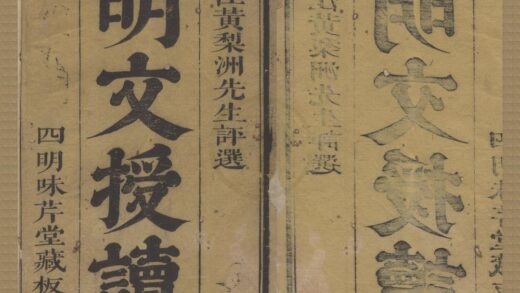 四明味芹堂藏
明文授讀
江黃梨洲先生評選
江黃梨洲先生評選
明文授讀
四明味芹堂藏板